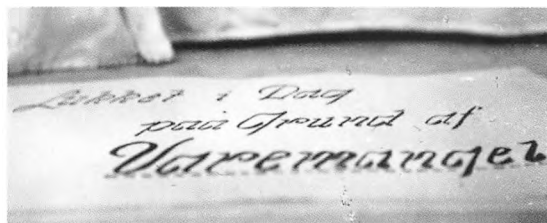 Lukket i Dag
paa Grund af
Varemangel